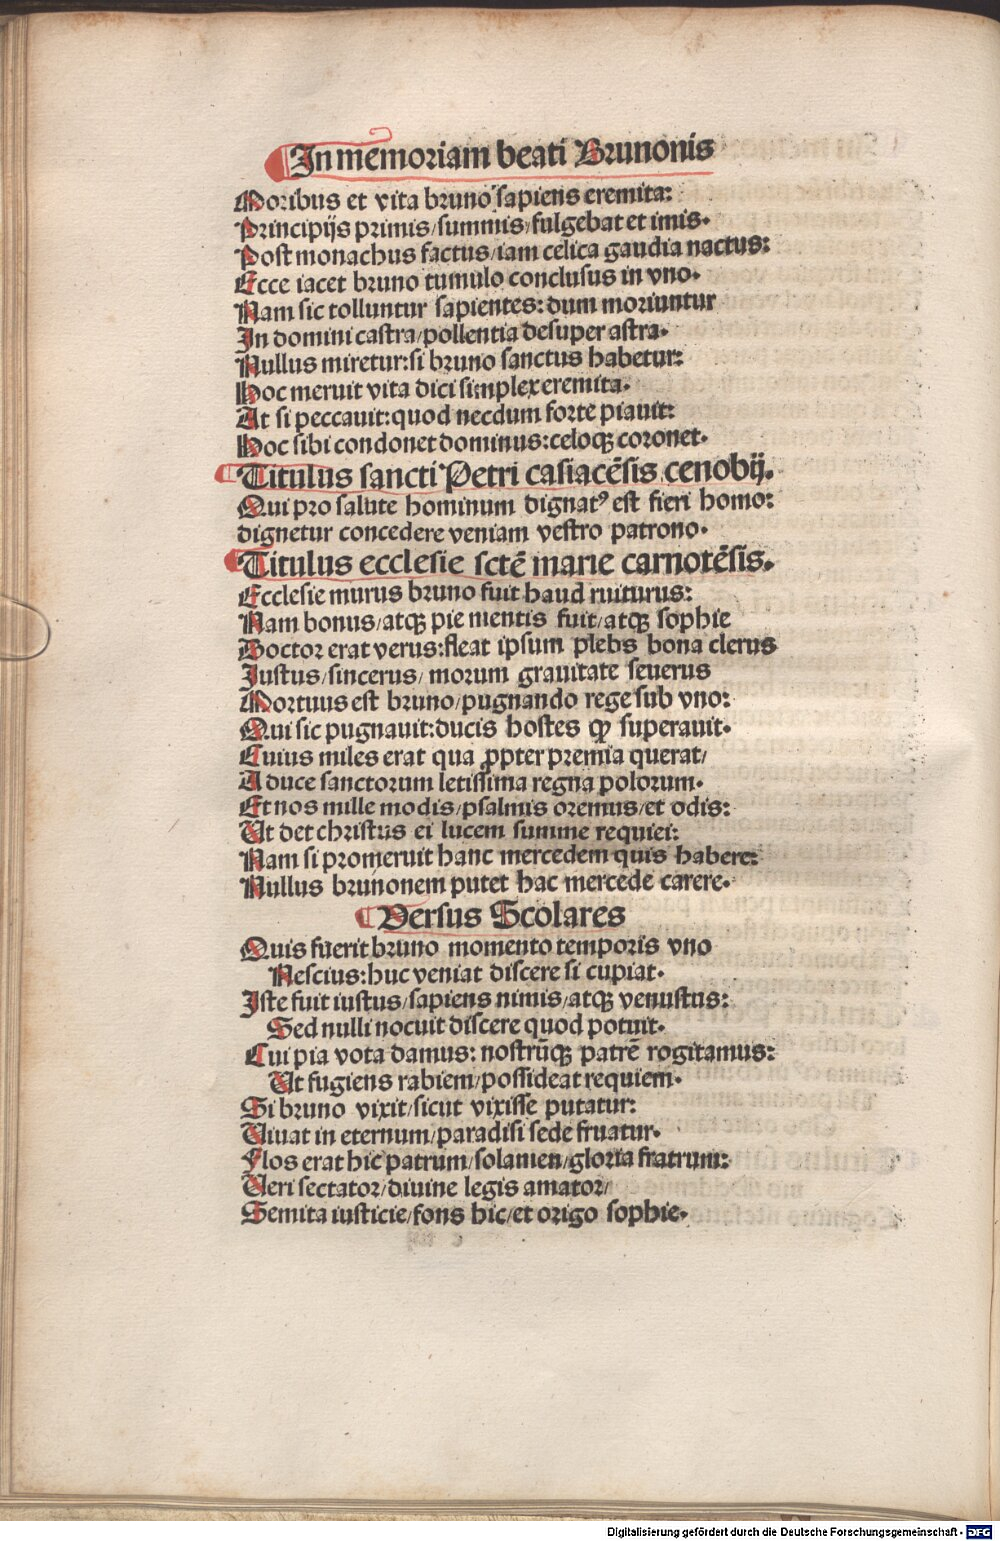 In memoriam beati Brunonis
Moribus et vita bruno sapiens eremita:
Principijs primis/summis/fulgebat et imis.
Post monachus factus/iam celica gaudia nactus:
Ecce iacet bruno tumulo conclusus in vno.
Nam sic tolluntur sapientes: dum moriuntur
In domini castra/pollentia desuper astra.
Nullus miretur: si bruno sanctus habetur:
Hoc meruit vita dici simplex eremita.
At si peccauit: quod necdum forte piauit:
Hoc sibi condonet dominus: celoqꝫ coronet.
Titulus sancti Petri casiacēsis cenobij.
Qui pro salute hominum dignatꝰ est fieri homo:
dignetur concedere veniam vestro patrono.
Titulus ecclesie sctē marie carnotēsis.
Ecclesie murus bruno fuit haud ruiturus:
Nam bonus/atqꝫ pie mentis fuit/atqꝫ sophie
Doctor erat verus: fleat ipsum plebs bona clerus
Justus/sincerus/ morum grauitate seuerus
Mortuus est bruno/pugnando rege sub vno:
Qui sic pugnauit: ducis hostes qꝫ superauit.
Cuius miles erat qua ꝓpter premia querat/
A duce sanctorum letissima regna polorum.
Et nos mille modis/psalmis oremus/et odis:
Ut det christus ei lucem summe requiei:
Nam si promeruit hanc mercedem quis habere:
Nullus brunonem putet hac mercede carere.
Versus Scolares
Quis fuerit bruno momento temporis vno
Nescius: huc veniat discere si cupiat.
Iste fuit iustus/sapiens nimis/atqꝫ venustus:
Sed nulli nocuit discere quod potuit.
Cui pia vota damus: nostrūqꝫ patrē rogitamus:
Ut fugiens rabiem/possideat requiem.
Si bruno vixit/sicut vixisse putatur:
Viuat in eternum/paradisi sede fruatur.
Flos erat hic patrum/solamen/gloria fratrum:
Veri sectator/diuine legis amator/
Semita iusticie/fons hic/et origo sophie.
Digitalisierung gefördert durch die Deutsche Forschungsgemeinschaft - DFG